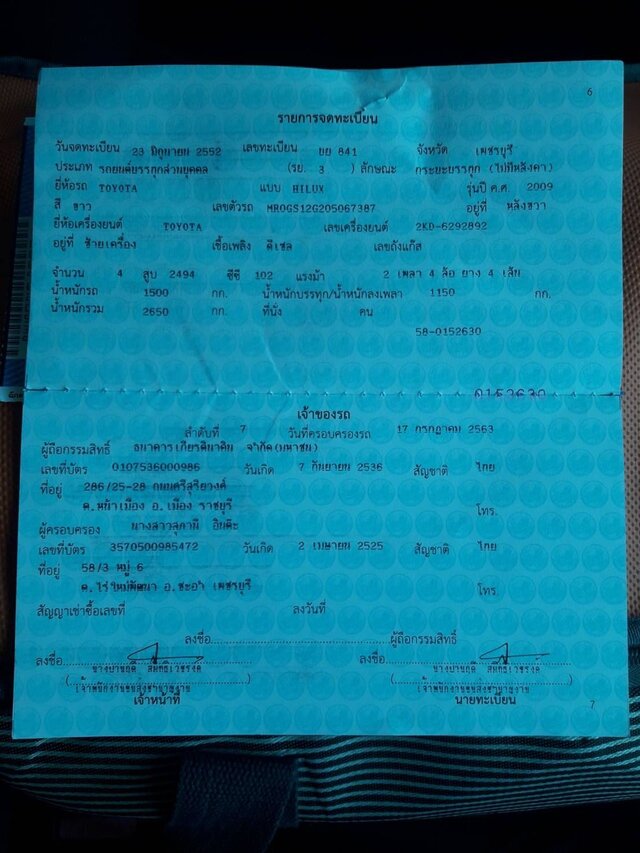 6
รายการจดทะเบียน
วันจดทะเบียน 23 มิถุนายน 2552 เลขทะเบียน บย 841 จังหวัด เพชรบุรี
ประเภท รถยนต์บรรทุกส่วนบุคคล (รย. 3 ) ลักษณะ กระบะบรรทุก (ไม่มีหลังคา)
ยี่ห้อรถ TOYOTA แบบ HILUX รุ่นปี ค.ศ. 2009
สี ขาว เลขตัวรถ MR0GS12G205067387 อยู่ที่ หลังขวา
ยี่ห้อเครื่องยนต์ TOYOTA เลขเครื่องยนต์ 2KD-6292892
อยู่ที่ ซ้ายเครื่อง เชื้อเพลิง ดีเซล เลขถังแก๊ส
จำนวน 4 สูบ 2494 ซีซี 102 แรงม้า 2 เพลา 4 ล้อ ยาง 4 เส้น
น้ำหนักรถ 1500 กก. น้ำหนักบรรทุก/น้ำหนักลงเพลา 1150 กก.
น้ำหนักรวม 2650 กก. ที่นั่ง คน
58-0152630
0152630
เจ้าของรถ
ลำดับที่ 7 วันที่ครอบครองรถ 17 กรกฎาคม 2563
ผู้ถือกรรมสิทธิ์ ธนาคารเกียรตินาคิน จำกัด(มหาชน)
เลขที่บัตร 0107536000986 วันเกิด 7 กันยายน 2536 สัญชาติ ไทย
ที่อยู่ 286/25-28 ถนนศรีสุริยวงศ์
ต.หน้าเมือง อ.เมือง ราชบุรี โทร.
ผู้ครอบครอง นางสาวสุภามี อินต๊ะ
เลขที่บัตร 3570500985472 วันเกิด 2 เมษายน 2525 สัญชาติ ไทย
ที่อยู่ 58/3 หมู่ 6
ต.ไร่ใหม่พัฒนา อ.ชะอำ เพชรบุรี โทร.
สัญญาเช่าซื้อเลขที่ ลงวันที่
ลงชื่อ ผู้ถือกรรมสิทธิ์
ลงชื่อ ลงชื่อ
เจ้าพนักงานขนส่งชำนาญงาน เจ้าพนักงานขนส่งชำนาญงาน
เจ้าหน้าที่ นายทะเบียน
7